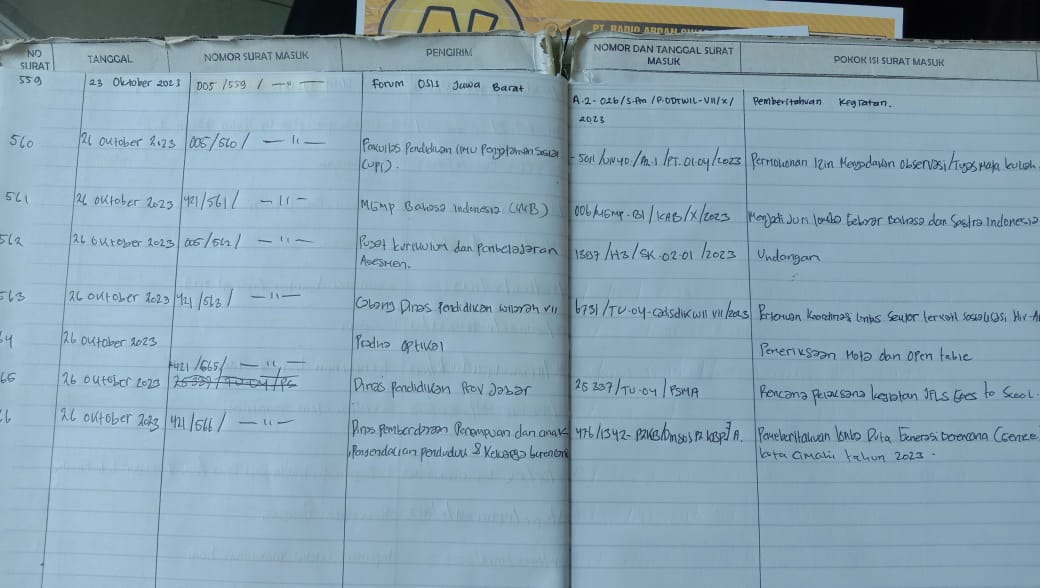 PT. RADIO ARDAN
NO SURAT
TANGGAL
NOMOR SURAT MASUK
PENGIRIM
NOMOR DAN TANGGAL SURAT MASUK
POKOK ISI SURAT MASUK
559 23 Oktober 2023 005 /559 / — " — Forum OSIS Jawa Barat
A.2- 026/S.Pm /P.ODTWIL-VII/X/ 2023 Pemberitahuan Kegiatan.
560 26 Oktober 2023 005/560/ — " — Pendidikan Ilmu Pengetahuan Sosial (UPI).
/2023 Permohonan Izin Mengadakan Observasi/Tugas Mata kuliah
561 26 Oktober 2023 421/561/ — " — MGMP Bahasa Indonesia (KKB)
006/MGMP-BI/KAB/X/2023 Menjadi Juri lomba Gebyar Bahasa dan Sastra Indonesia
562 26 Oktober 2023 005/562/ — " — Pusat kurikulum dan pembelajaran Asesmen.
1307 /H3/SK.02.01 /2023 Undangan
563 26 Oktober 2023 421/563/ — " — Cabang Dinas Pendidikan wilayah VII
6751/TU.04-cadisdikwil VII/2023 Pertemuan Koordinasi lintas Sektor terkait sosialisasi HIV-A
64 26 Oktober 2023 Optikal
Pemeriksaan Mata dan open table
65 26 Oktober 2023 421/565/ — " — Dinas Pendidikan Prov Jabar
25337/TU.04/PSMA Rencana kegiatan Goes to Scool.
66 26 Oktober 2023 421/566/ — " — Dinas Pemberdayaan Perempuan dan anak, Pengendalian penduduk & Keluarga berencana
476/1342- Pemeberitahuan lomba Duta Generasi berencana (Genre
kota Cimahi tahun 2023.